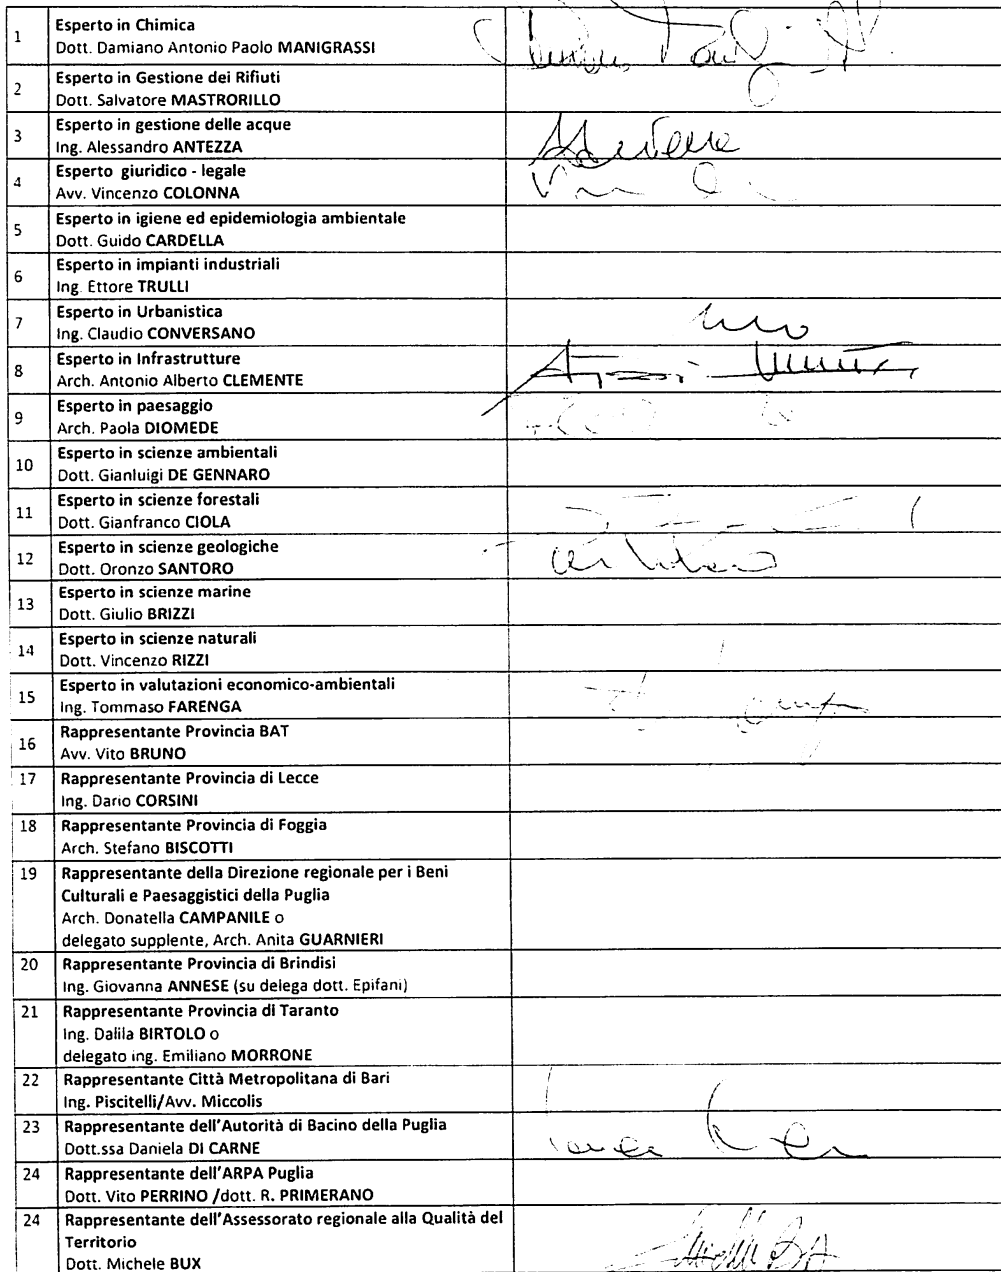 1
Esperto in Chimica
Dott. Damiano Antonio Paolo MANIGRASSI
2
Esperto in Gestione dei Rifiuti
Dott. Salvatore MASTRORILLO
3
Esperto in gestione delle acque
Ing. Alessandro ANTEZZA
4
Esperto giuridico - legale
Avv. Vincenzo COLONNA
5
Esperto in igiene ed epidemiologia ambientale
Dott. Guido CARDELLA
6
Esperto in impianti industriali
Ing. Ettore TRULLI
7
Esperto in Urbanistica
Ing. Claudio CONVERSANO
8
Esperto in Infrastrutture
Arch. Antonio Alberto CLEMENTE
9
Esperto in paesaggio
Arch. Paola DIOMEDE
10
Esperto in scienze ambientali
Dott. Gianluigi DE GENNARO
11
Esperto in scienze forestali
Dott. Gianfranco CIOLA
12
Esperto in scienze geologiche
Dott. Oronzo SANTORO
13
Esperto in scienze marine
Dott. Giulio BRIZZI
14
Esperto in scienze naturali
Dott. Vincenzo RIZZI
15
Esperto in valutazioni economico-ambientali
Ing. Tommaso FARENGA
16
Rappresentante Provincia BAT
Avv. Vito BRUNO
17
Rappresentante Provincia di Lecce
Ing. Dario CORSINI
18
Rappresentante Provincia di Foggia
Arch. Stefano BISCOTTI
19
Rappresentante della Direzione regionale per i Beni
Culturali e Paesaggistici della Puglia
Arch. Donatella CAMPANILE o
delegato supplente, Arch. Anita GUARNIERI
20
Rappresentante Provincia di Brindisi
Ing. Giovanna ANNESE (su delega dott. Epifani)
21
Rappresentante Provincia di Taranto
Ing. Dalila BIRTOLO o
delegato ing. Emiliano MORRONE
22
Rappresentante Città Metropolitana di Bari
Ing. Piscitelli/Avv. Miccolis
23
Rappresentante dell'Autorità di Bacino della Puglia
Dott.ssa Daniela DI CARNE
24
Rappresentante dell'ARPA Puglia
Dott. Vito PERRINO /dott. R. PRIMERANO
24
Rappresentante dell'Assessorato regionale alla Qualità del
Territorio
Dott. Michele BUX